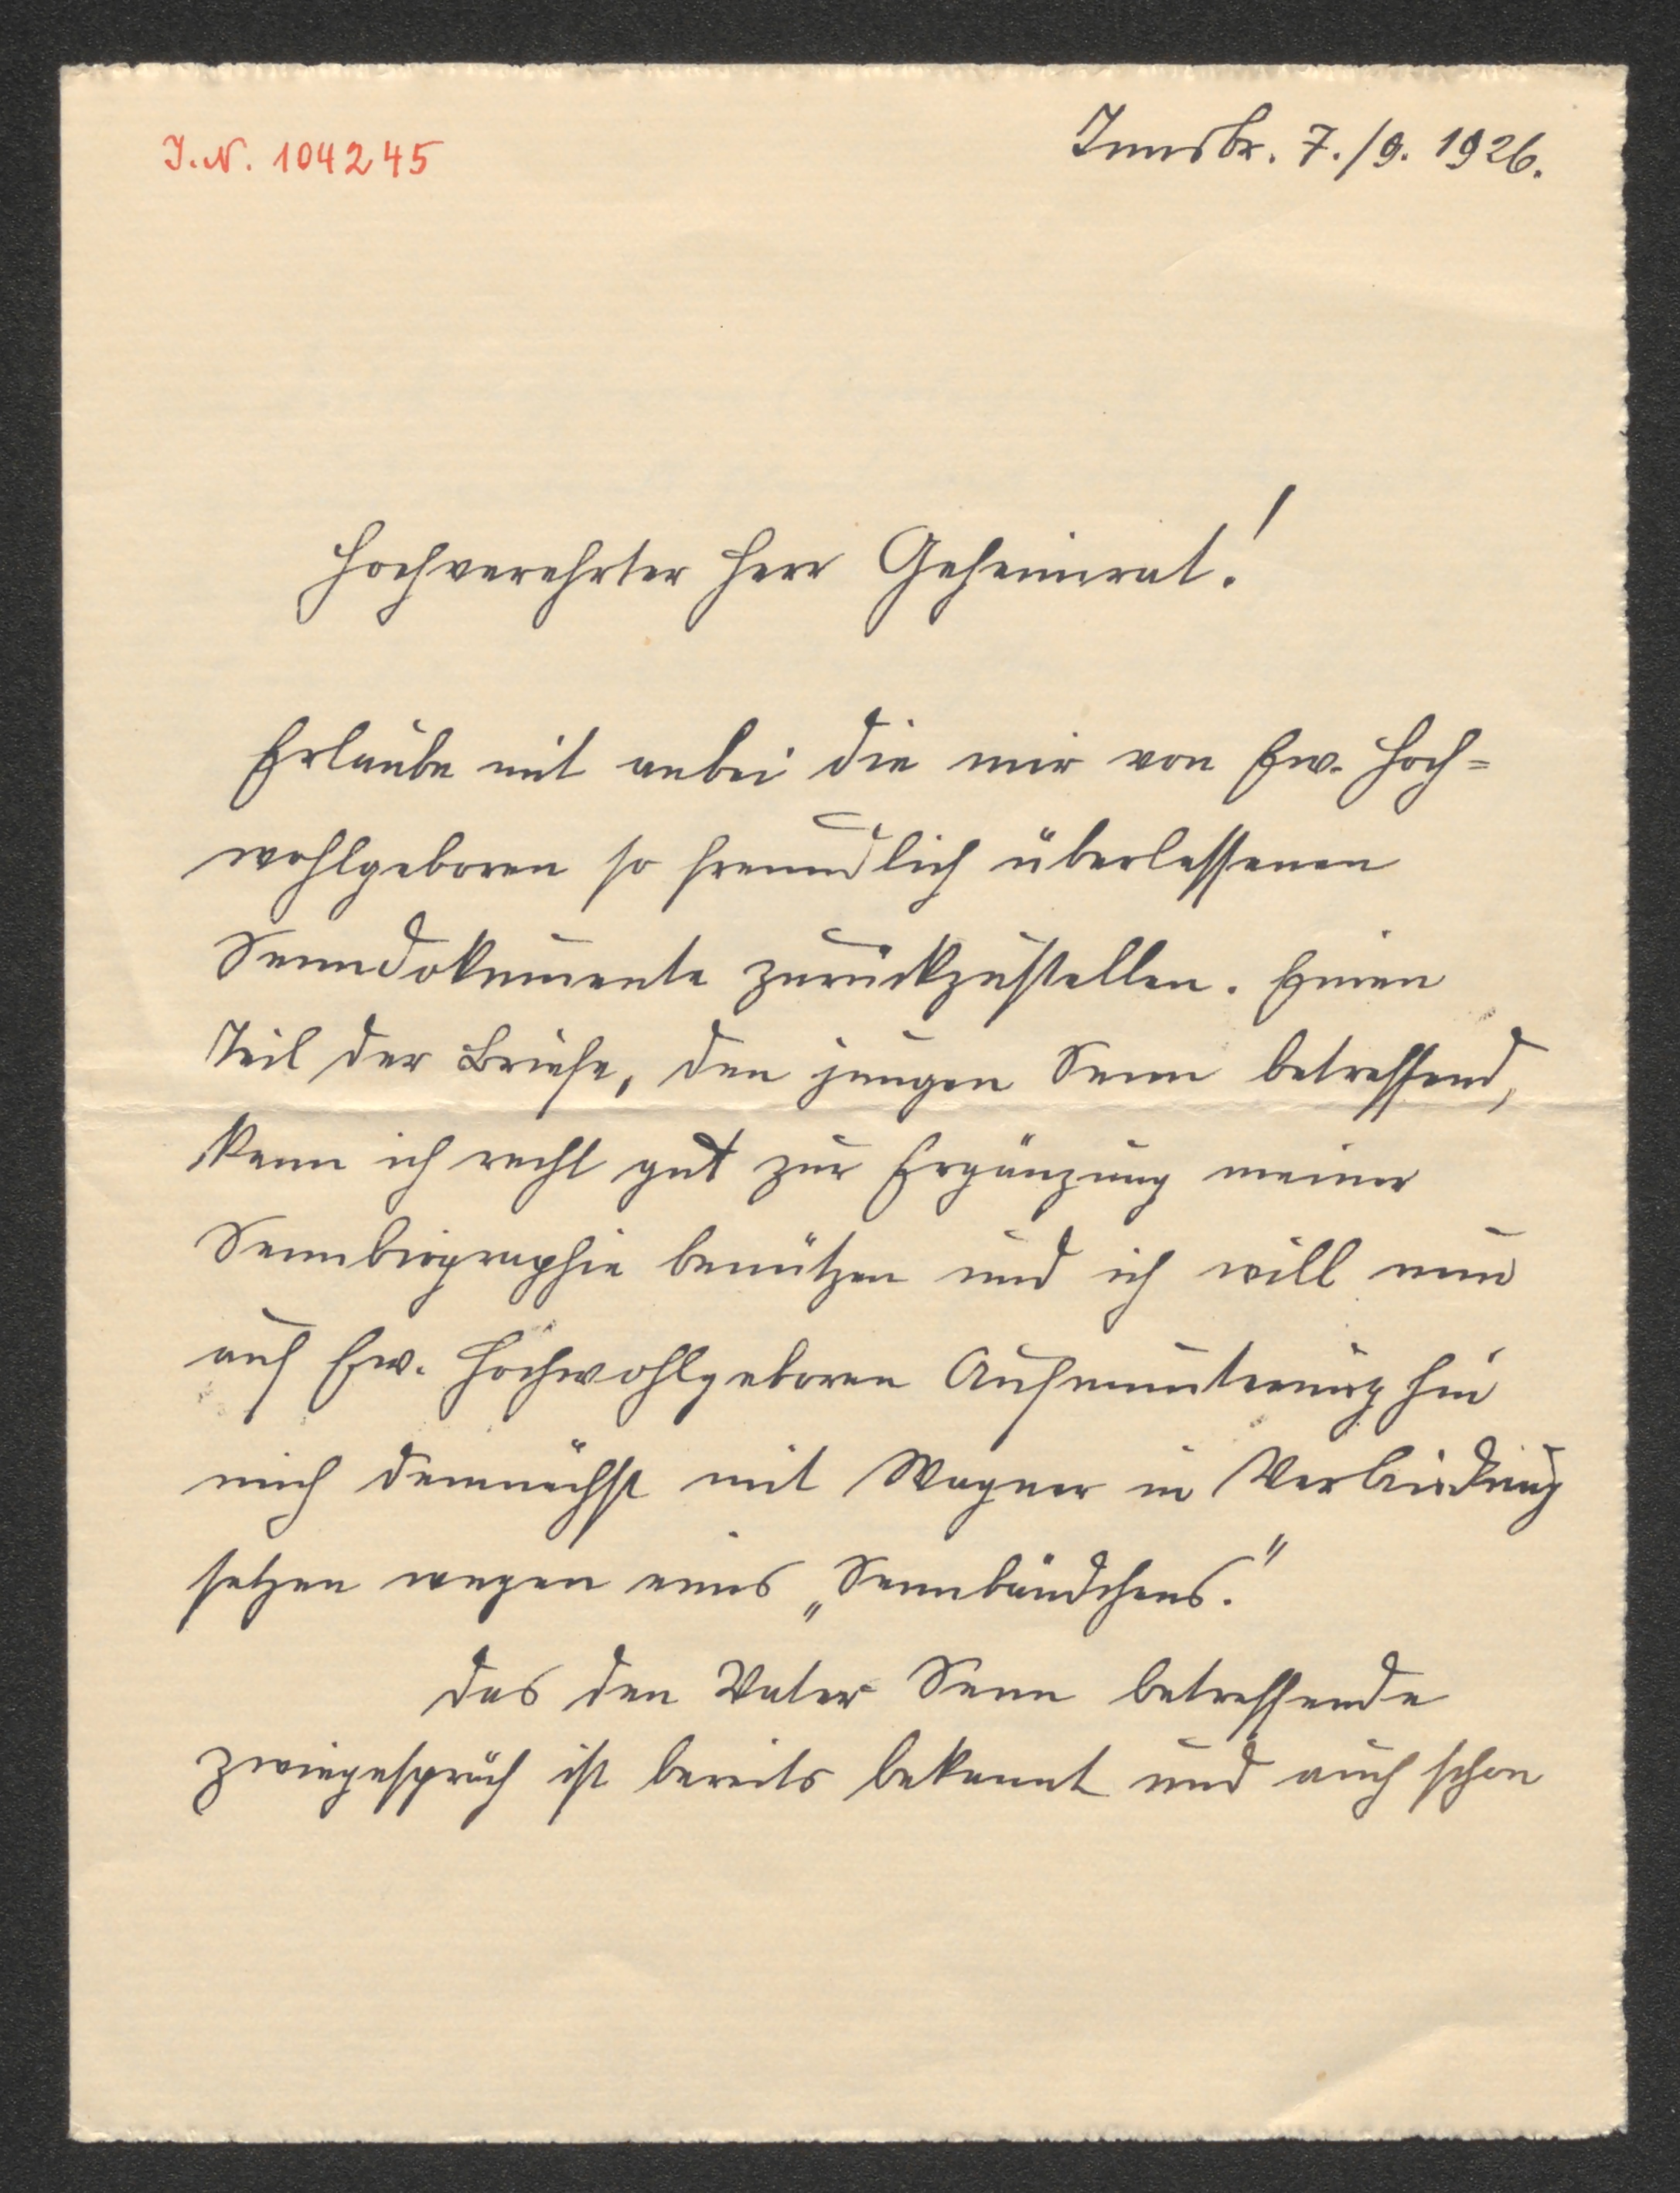 J.N. 104245
Innsbr. 7./9. 1926.
Hochverehrter Herr Geheimrat!
Erlaube mit anbei die mir von Ew. Hoch=
wohlgeboren so freundlich überlassenen
Senndokumente zurückzustellen. Einen
Teil der Briefe, den jungen Senn betreffend,
kann ich recht gut zur Ergänzung meiner
Sennbiographie benützen und ich will nun
auf Ew. Hochwohlgeboren Aufmunterung hin
mich demnächst mit Wagner in Verbindung
setzen wegen eines „Sennbändchens."
Das den Vater Senn betreffende
Zwiegespräch ist bereits bekannt und auch schon